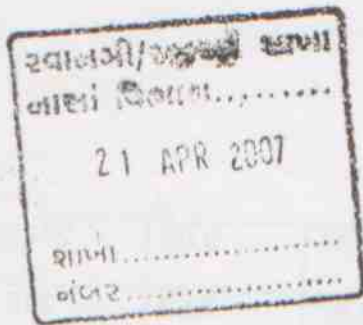 રવાનગી/ શાખા
નાણાં વિભાગ.........
21 APR 2007
શાખા....................
નંબર....................